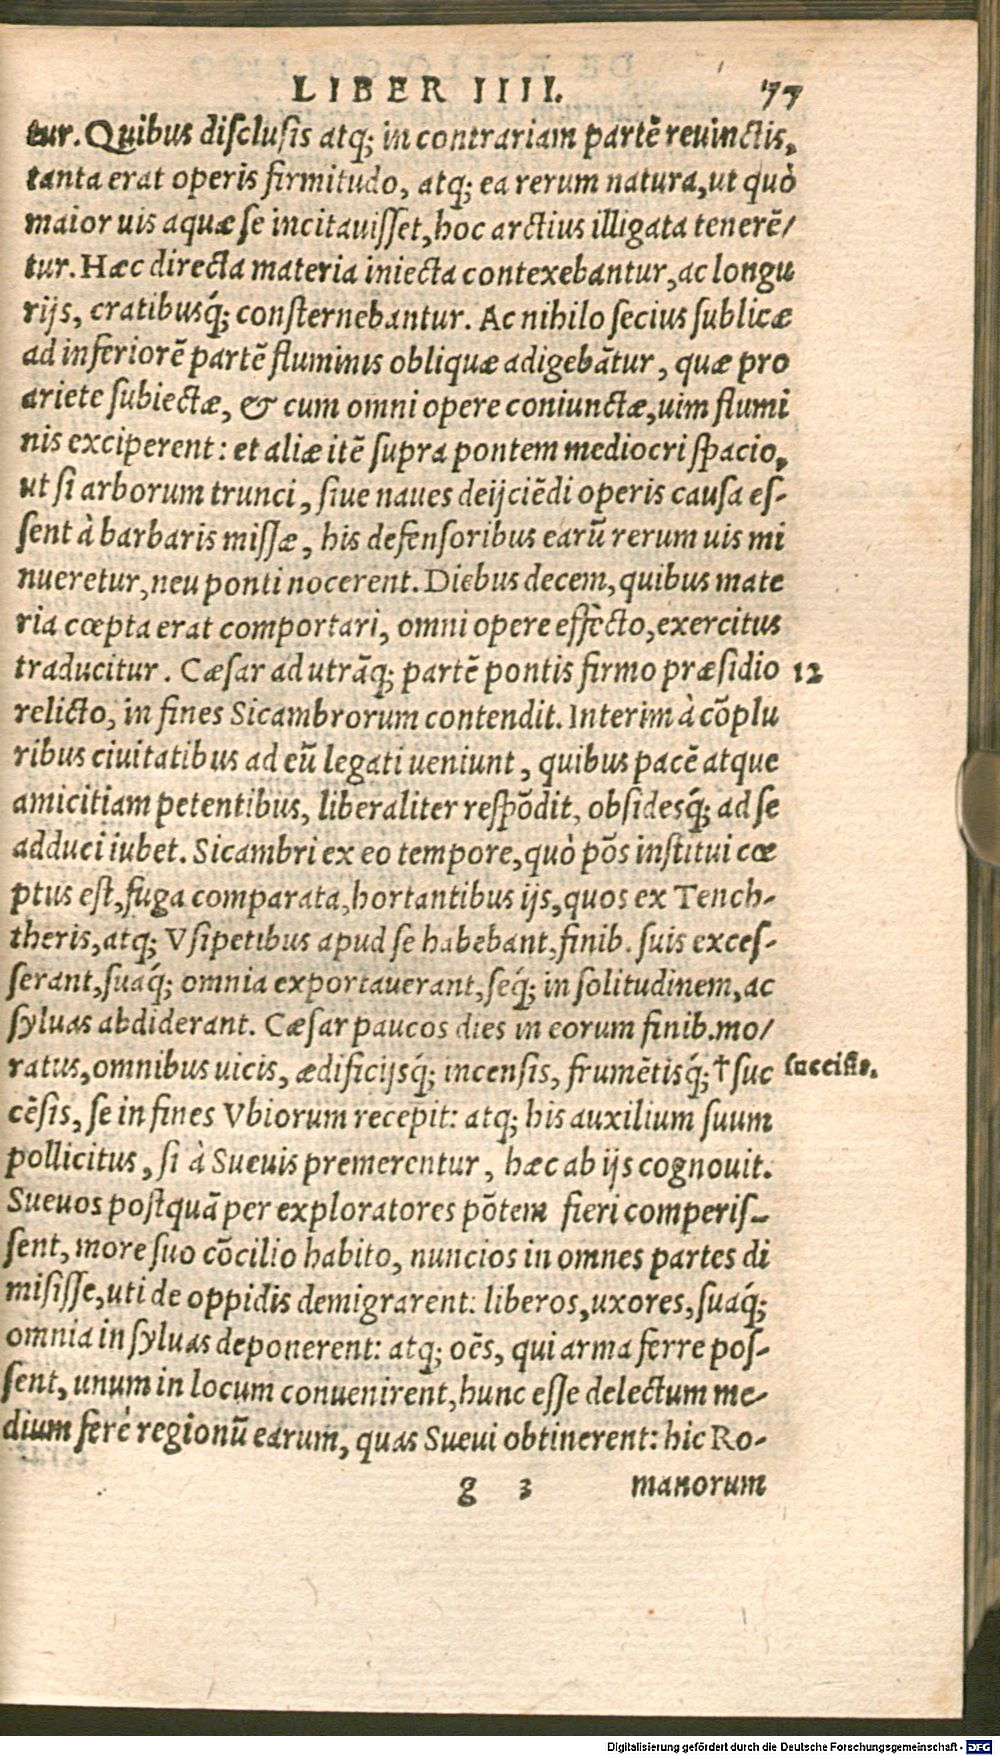 LIBER IIII. 77
tur. Quibus disclusis atq; in contrariam partē reuinctis,
tanta erat operis firmitudo, atq; ea rerum natura, ut quò
maior uis aquæ se incitauisset, hoc arctius illigata tenerē/
tur. Hæc directa materia iniecta contexebantur, ac longu
rijs, cratibusq́; consternebantur. Ac nihilo secius sublicæ
ad inferiorē partē fluminis obliquæ adigebātur, quæ pro
ariete subiectæ, & cum omni opere coniunctæ, uim flumi
nis exciperent: et aliæ itē supra pontem mediocri spacio,
ut si arborum trunci, siue naues deijciēdi operis causa es-
sent à barbaris missæ, his defensoribus earū rerum uis mi
nueretur, neu ponti nocerent. Diebus decem, quibus mate
ria cœpta erat comportari, omni opere effecto, exercitus
traducitur. Cæsar ad utrāq; partē pontis firmo præsidio 12
relicto, in fines Sicambrorum contendit. Interim à cōplu
ribus ciuitatibus ad eū legati ueniunt, quibus pacē atque
amicitiam petentibus, liberaliter respōdit, obsidesq́; ad se
adduci iubet. Sicambri ex eo tempore, quò pōs institui cœ
ptus est, fuga comparata, hortantibus ijs, quos ex Tench-
theris, atq; Vsipetibus apud se habebant, finib. suis exces-
serant, suaq́; omnia exportauerant, seq́; in solitudinem, ac
syluas abdiderant. Cæsar paucos dies in eorum finib. mo/
ratus, omnibus uicis, ædificijsq́; incensis, frumētisq́; † suc succisis.
cēsis, se in fines Vbiorum recepit: atq; his auxilium suum
pollicitus, si à Sueuis premerentur, hæc ab ijs cognouit.
Sueuos postquā per exploratores pōtem fieri comperis-
sent, more suo cōcilio habito, nuncios in omnes partes di
misisse, uti de oppidis demigrarent: liberos, uxores, suaq́;
omnia in syluas deponerent: atq; oēs, qui arma ferre pos-
sent, unum in locum conuenirent, hunc esse delectum me-
dium ferè regionū earum, quas Sueui obtinerent: hic Ro-
g 3 manorum
Digitalisierung gefördert durch die Deutsche Forschungsgemeinschaft - DFG